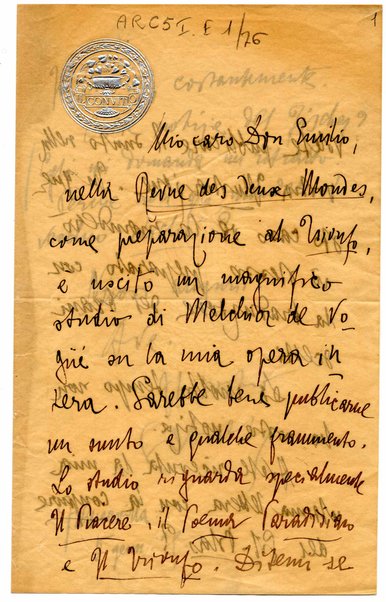 ARC5 I. E 1/76
1
CONVITO
Mio caro Don Emilio,
nella Revue des deux Mondes,
come preparazione al Trionfo,
è uscito un magnifico
studio di Melchior de Vo-
güé su la mia opera in-
tera. Sarebbe bene publicarne
un sunto e qualche frammento.
Lo studio riguarda specialmente
Il Piacere, il Poema Paradisiaco
e Il Trionfo. Ditemi se